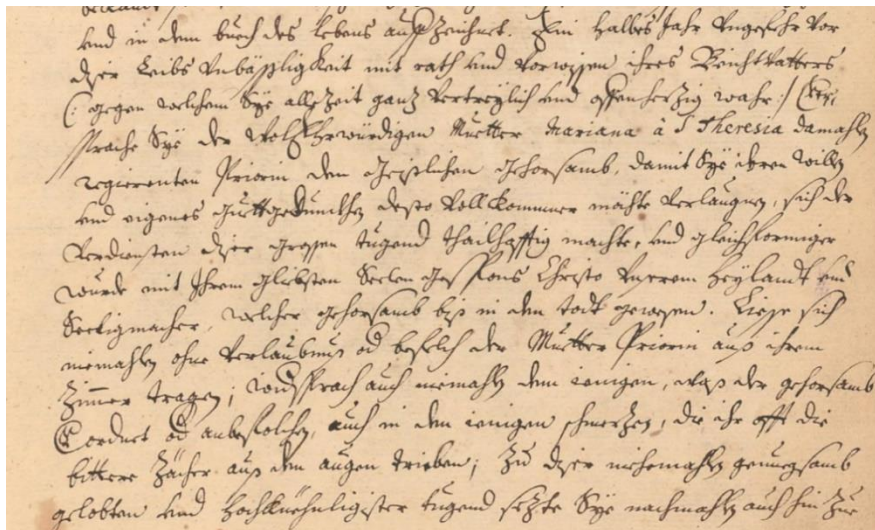 vnd in dem buech des lebens auffzeichnet. Ein halbes Jahr vngefehr vor
diser Leibs vnbäßligkeit mit rath vnd vorwissen ihres Beichtvatters
(: gegen welchem Sye allezeit ganz vertreylich vnd offenherzig wahr :) Ver,
sprache Sye der WollEhrwürdigen Muetter Mariana à S Theresia damahlen
regierenten Priorin den Geistlichen gehorsamb, damit Sye ihren willen
vnd eigenes guettgedunckhen desto vollkommer möchte verlaugnen, sich der
verdiensten diser grossen tugend theilhafftig machte, vnd gleichformiger
wurde mit Ihrem geliebsten Seelen Gesspons Christo vnserem Heylandt vnd
Seeligmacher, welcher gehorsamb biß in den todt gewesen. Liesse sich
niemahlen ohne verlaubnuß od befelch der Muetter Priorin auß ihrem
Zimmer tragen; widersprach auch niemahlen dem ienigen, was der gehorsamb
ordnet od anbefolchen, auch in den ienigen schmerzen, die ihr offt die
bittere Zächer auß den augen trieben; Zu diser niehemahlen genuegsamb
gelobten vnd Hochlöbligister tugend sezte Sye nachmahlen auch hin zue